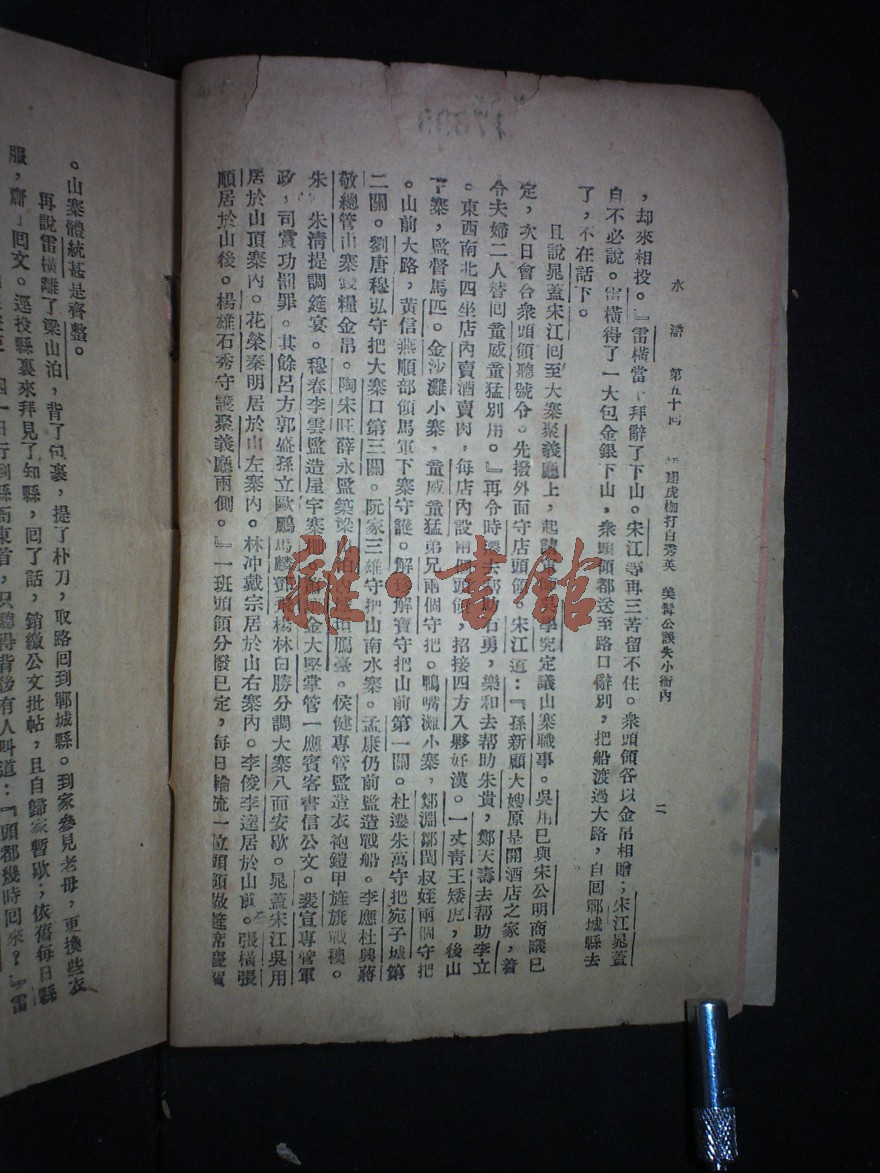 水滸 第五十回 翅虎枷打白秀英 美髯公誤失小衙內
二
,却來相投。』雷橫當下拜辭了下山。宋江等再三苦留不住。衆頭領各以金帛相贈;宋江晁蓋
自不必說。雷橫得了一大包金銀下山,衆頭領都送至路口辭別,把船渡過大路,自回鄆城縣去
了,不在話下。
且說晁蓋宋江回至大寨聚義廳上,起請軍師吳學究定議山寨職事。吳用已與宋公明商議已
定,次日會合衆頭領聽號令。先撥外面守店頭領。宋江道:『孫新顧大嫂原是開酒店之家,着
令夫婦二人替回童威童猛別用。』再令時遷去帮助石勇,樂和去帮助朱貴,鄭天壽去帮助李立
。東西南北四坐店內賣酒賣肉,每店內設兩個頭領,招接四方入夥好漢。一丈青王矮虎,後山
下寨,監督馬匹。金沙灘小寨,童威童猛弟兄兩個守把。鴨嘴灘小寨,鄒淵鄒閏叔姪兩個守把
。山前大路,黃信燕順部領馬軍下寨守護。解珍解寶守把山前第一關。杜遷宋萬守把宛子城第
二關。劉唐穆弘守把大寨口第三關。阮家三雄守把山南水寨。孟康仍前監造戰船。李應杜興蔣
敬總管山寨錢糧金帛。陶宗旺薛永監築梁山泊內城垣鴈臺。侯健專管監造衣袍鎧甲旌旗戰襖。
朱 朱清提調筵宴。穆春李雲監造屋宇寨柵 金大堅掌管一應賓客書信公文。裴宣專管軍
政,司賞功罰罪。其餘呂方郭盛孫立歐鵬馬麟鄧飛楊林白勝分調大寨八面安歇。晁蓋宋江吳用
居於山頂寨內。花榮秦明居於山左寨內。林冲戴宗居於山右寨內。李俊李逵居於山前。張橫張
順居於山後。楊雄石秀守護聚義廳兩側。』一班頭領分撥已定,每日輪流一位頭領做筵席慶賀
。山寨體統甚是齊整。
再說雷橫離了梁山泊,背了包裹,提了朴刀,取路回到鄆城縣。到家參見老母,更換些衣
服,齎了回文。逕投縣裏來拜見了知縣,回了話,銷繳公文批帖,且自歸家暫歇;依舊每日縣
一日行到縣衙東首,只聽得背後有人叫道:『頭都幾時回來?』雷
雜·書館